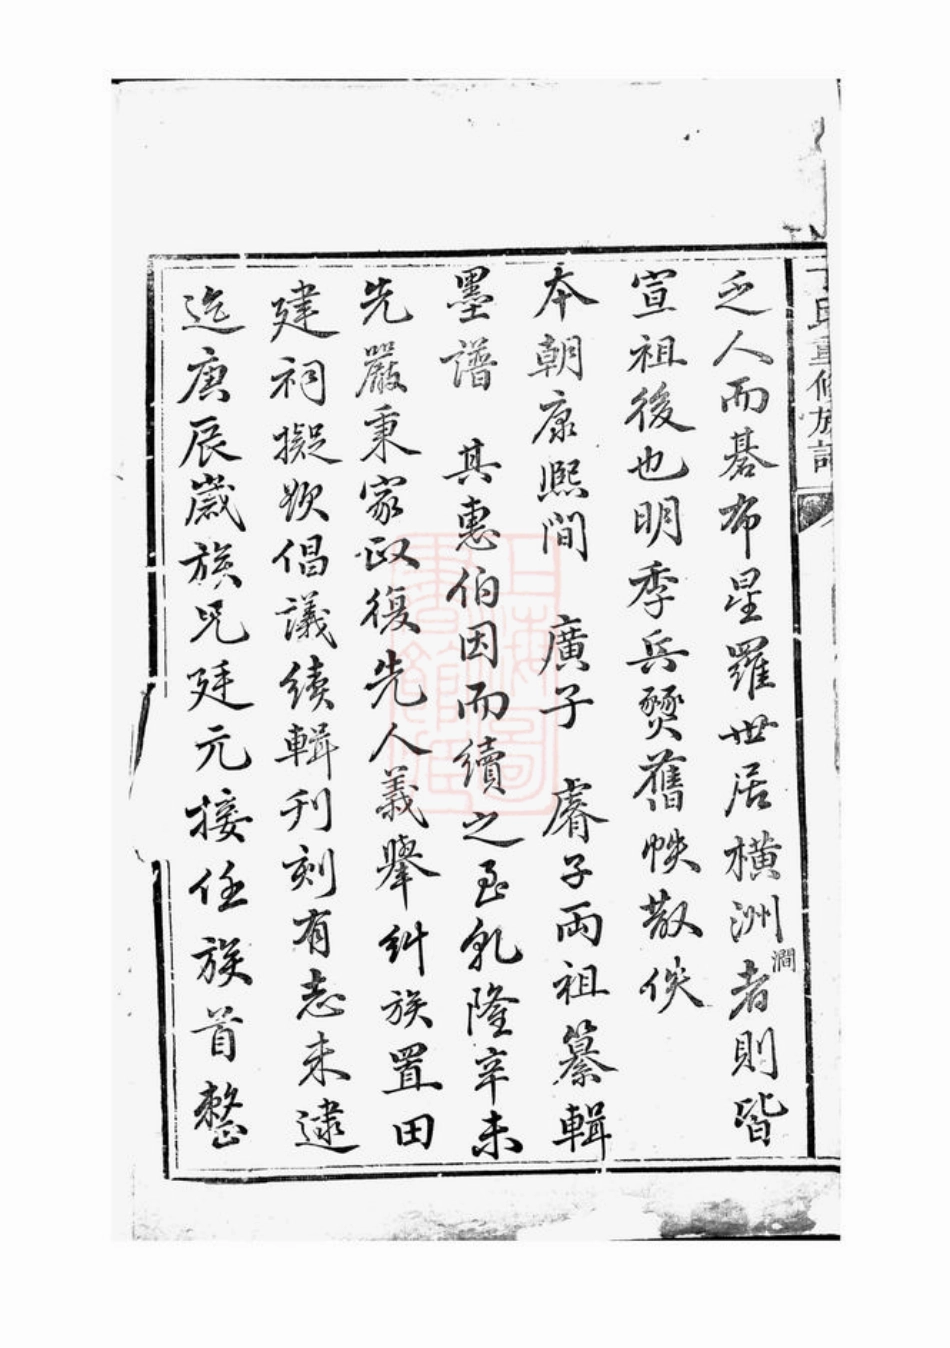 丁氏重修族譜
乏人而碁布星羅世居橫洲澗者則皆
宣祖後也明季兵燹舊帙散佚
本朝康熙間 廣子 睿子兩祖纂輯
墨譜 其惠伯因而續之至乳隆辛未
先嚴秉家政復先人義舉糾族置田
建祠擬欲倡議續輯刊刻有志未逮
迄庚辰歲族兄廷元接任族首整